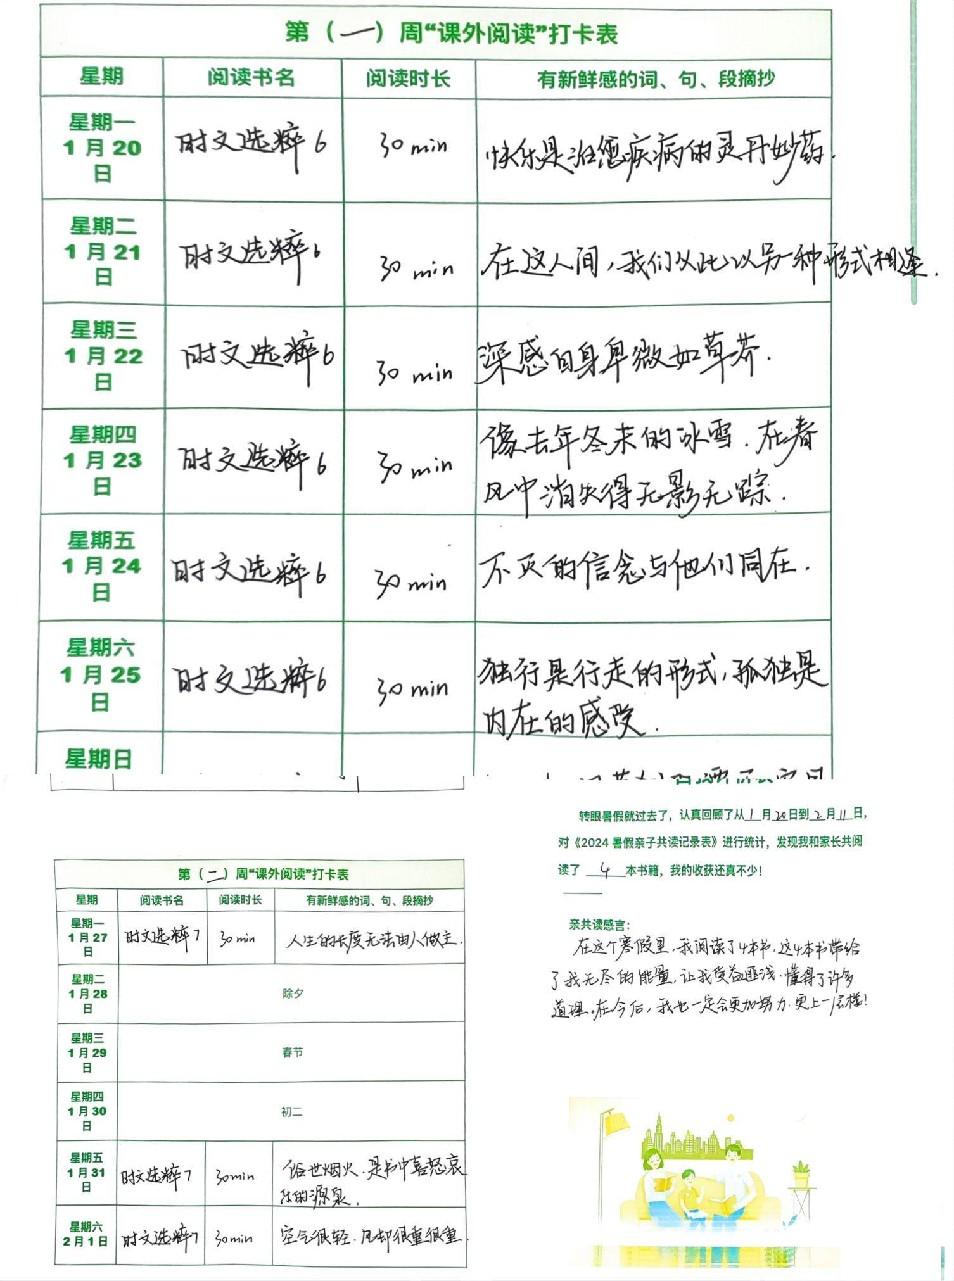 第（一）周“课外阅读”打卡表
星期 阅读书名 阅读时长 有新鲜感的词、句、段摘抄
星期一
1月20日
时文选粹6 30min 快乐是治愈疾病的灵丹妙药.
星期二
1月21日
时文选粹6 30min 在这人间,我们从此以另一种形式相逢.
星期三
1月22日
时文选粹6 30min 深感自身卑微如草芥.
星期四
1月23日
时文选粹6 30min 像去年冬末的冰雪.在春
风中消失得无影无踪.
星期五
1月24日
时文选粹6 30min 不灭的信念与他们同在.
星期六
1月25日
时文选粹6 30min 独行是行走的形式,孤独是
内在的感受.
星期日
第（二）周“课外阅读”打卡表
星期 阅读书名 阅读时长 有新鲜感的词、句、段摘抄
星期一
1月27日
时文选粹7 30min 人生的长度无法由人做主.
星期二
1月28日
除夕
星期三
1月29日
春节
星期四
1月30日
初二
星期五
1月31日
时文选粹7 30min 俗世烟火.是书中喜怒哀
乐的源泉.
星期六
2月1日
时文选粹7 30min 空气很轻.风却很重很重.
转眼暑假就过去了，认真回顾了从1月20日到2月11日，
对《2024暑假亲子共读记录表》进行统计，发现我和家长共阅
读了4本书籍，我的收获还真不少！
亲共读感言：
在这个寒假里,我阅读了4本书.这4本书带给
了我无尽的能量,让我受益匪浅.懂得了许多
道理.在今后,我也一定会更加努力.更上一层楼!